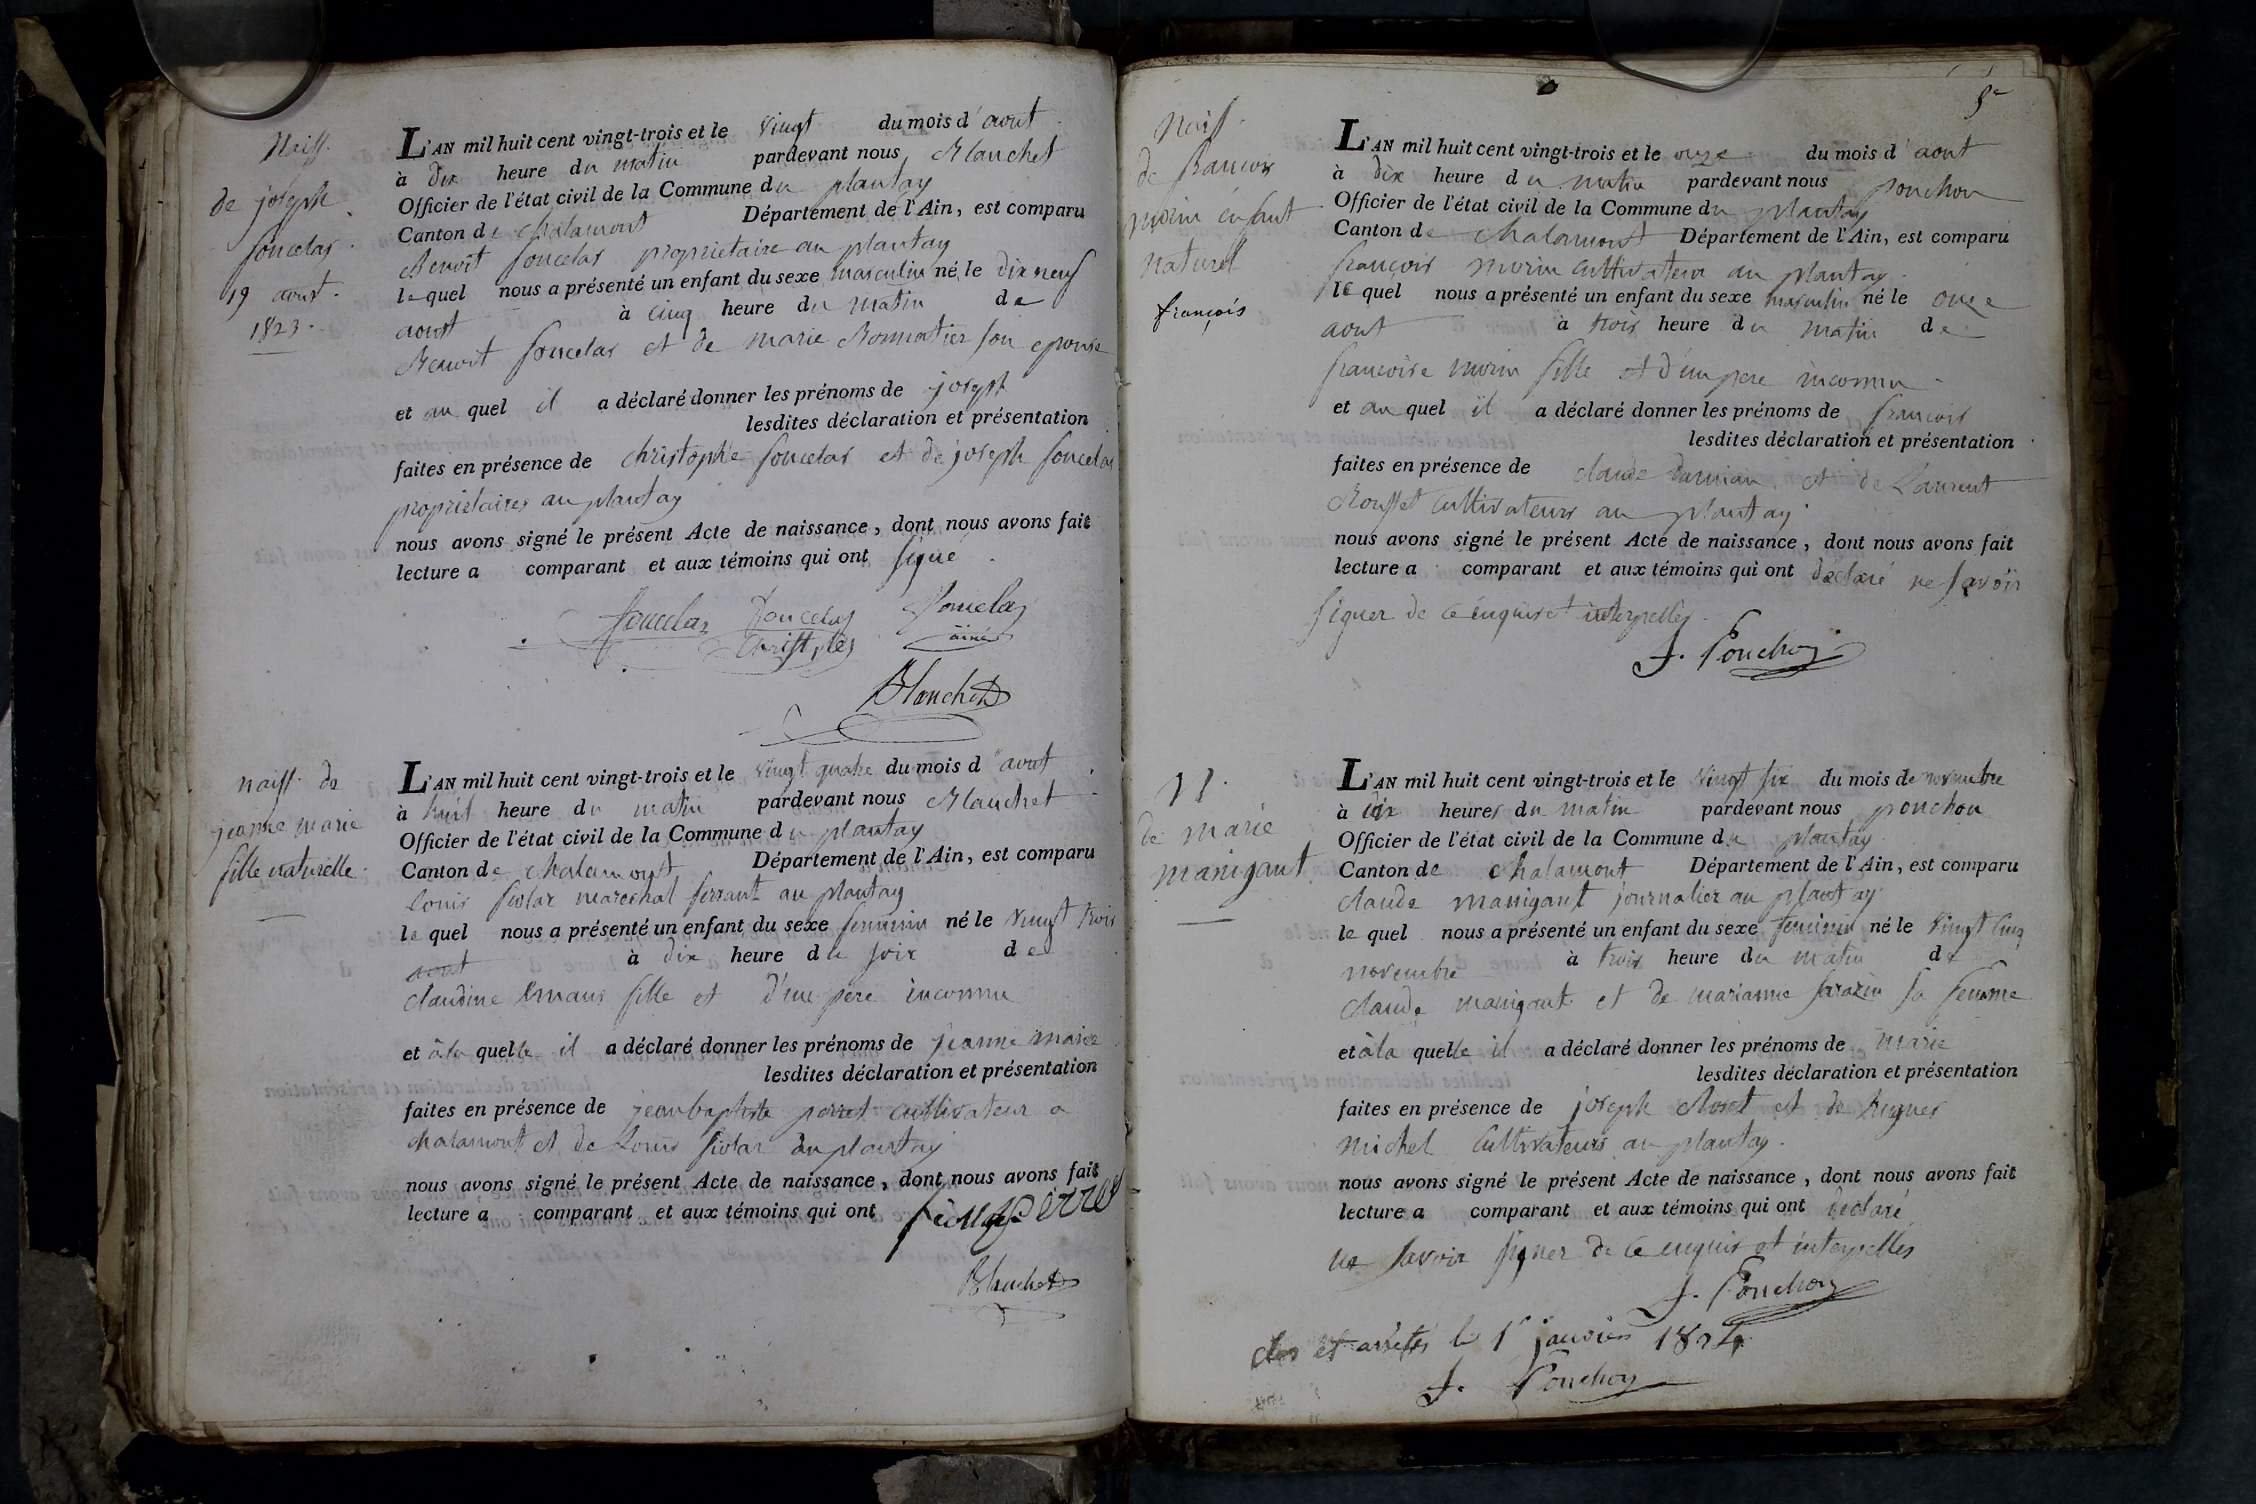 Naiss.
de joseph
foncelas
19 aout
1823.
L'AN mil huit cent vingt-trois et le vingt du mois d'aout
à dix heure du matin pardevant nous Blanchet
Officier de l'état civil de la Commune du plantay
Canton de chalamont Département de l'Ain, est comparu
Benoit foncelas proprietaire au plantay
lequel nous a présenté un enfant du sexe masculin né le dix neuf
aout à cinq heure du matin de
Benoit foncelas et de marie Bonnatier son epouse
et au quel il a déclaré donner les prénoms de joseph
lesdites déclaration et présentation
faites en présence de christophe foncelas et de joseph foncelas
proprietaires au plantay
nous avons signé le présent Acte de naissance, dont nous avons fait
lecture a comparant et aux témoins qui ont signé
foncelas foncelas foncelas
ainé
Blanchet
naiss. de
jeanne marie
fille naturelle
L'AN mil huit cent vingt-trois et le vingt quatre du mois d'aout
à huit heure du matin pardevant nous Blanchet
Officier de l'état civil de la Commune du plantay
Canton de chalamont Département de l'Ain, est comparu
louis fiolar marechal ferrant au plantay
lequel nous a présenté un enfant du sexe feminin né le vingt trois
aout à dix heure du soir de
claudine fille et d'un pere inconnu
et à la quelle il a déclaré donner les prénoms de jeanne marie
lesdites déclaration et présentation
faites en présence de jean baptiste perret cultivateur a
chalamont et de Louis fiolar au plantay
nous avons signé le présent Acte de naissance, dont nous avons fait
lecture a comparant et aux témoins qui ont
Perret
Blanchet
5e
Naiss.
de francois
morin enfant
naturel
françois
L'AN mil huit cent vingt-trois et le onze du mois d'aout
à dix heure du matin pardevant nous ponchon
Officier de l'état civil de la Commune du plantay
Canton de chalamont Département de l'Ain, est comparu
françois morin cultivateur au plantay
le quel nous a présenté un enfant du sexe masculin né le onze
aout à trois heure du matin de
francoise morin fille et d'un pere inconnu
et au quel il a déclaré donner les prénoms de francois
lesdites déclaration et présentation
faites en présence de claude Damian et de Laurent
Rousset cultivateurs au plantay
nous avons signé le présent Acte de naissance, dont nous avons fait
lecture a comparant et aux témoins qui ont déclaré ne savoir
signer de ce enquis et interpellés
f. Ponchon
N.
de marie
manigant
L'AN mil huit cent vingt-trois et le vingt six du mois de novembre
à dix heures du matin pardevant nous ponchon
Officier de l'état civil de la Commune du plantay
Canton de chalamont Département de l'Ain, est comparu
claude manigant journalier au plantay
le quel nous a présenté un enfant du sexe feminin né le vingt cinq
novembre à trois heure du matin de
claude manigant et de marianne sarazin sa femme
et à la quelle il a déclaré donner les prénoms de marie
lesdites déclaration et présentation
faites en présence de joseph et de
michel cultivateurs au plantay.
nous avons signé le présent Acte de naissance, dont nous avons fait
lecture a comparant et aux témoins qui ont déclaré
ne savoir signer de ce enquis et interpellés
f. Ponchon
clos et arrêtés le 1r janvier 1824
f. Ponchon